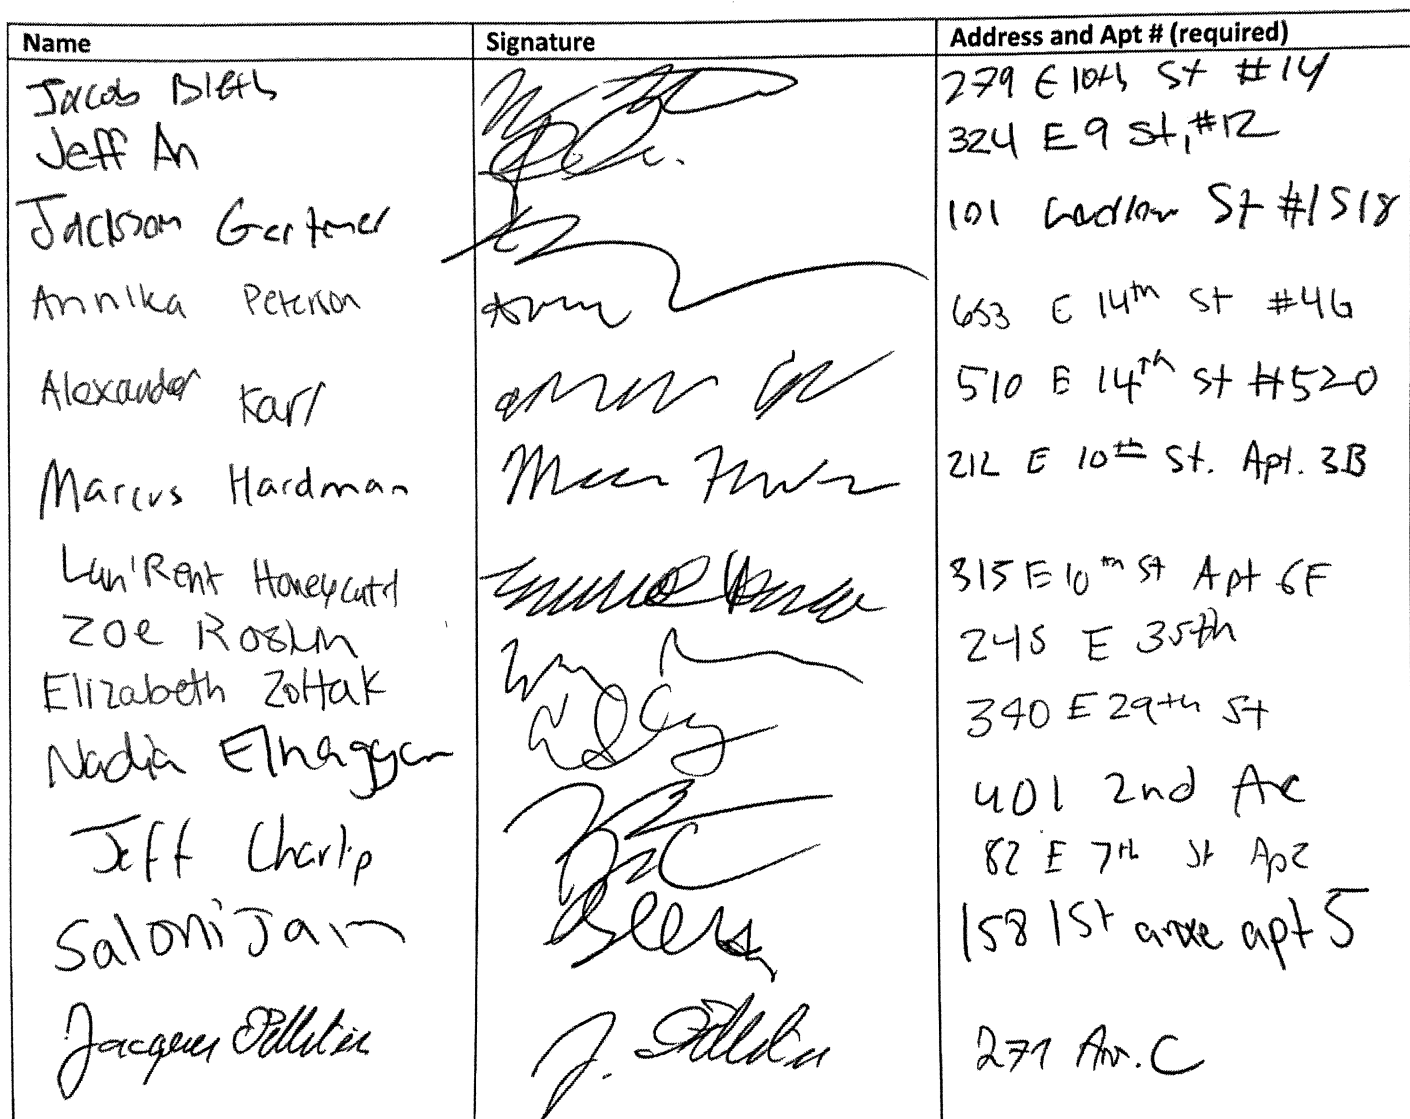 Name Signature Address and Apt # (required)
Jacob 279 E 10th St #14
Jeff An 324 E 9 St, #12
Jackson Gertner 101 Ludlow St #1518
Annika Peterson 653 E 14th St #4G
Alexander Karl 510 E 14th St #520
Marcus Hardman 212 E 10th St. Apt. 3B
Honeycutt 315 E 10th St Apt 6F
Zoe 245 E 35th
Elizabeth Zoltak 340 E 29th St
Nadia 401 2nd Ave
Jeff Charlip 82 E 7th St Ap2
Saloni Jain 158 1st apt 5
Jacques Pelletier J. Pelletier 271 Av. C